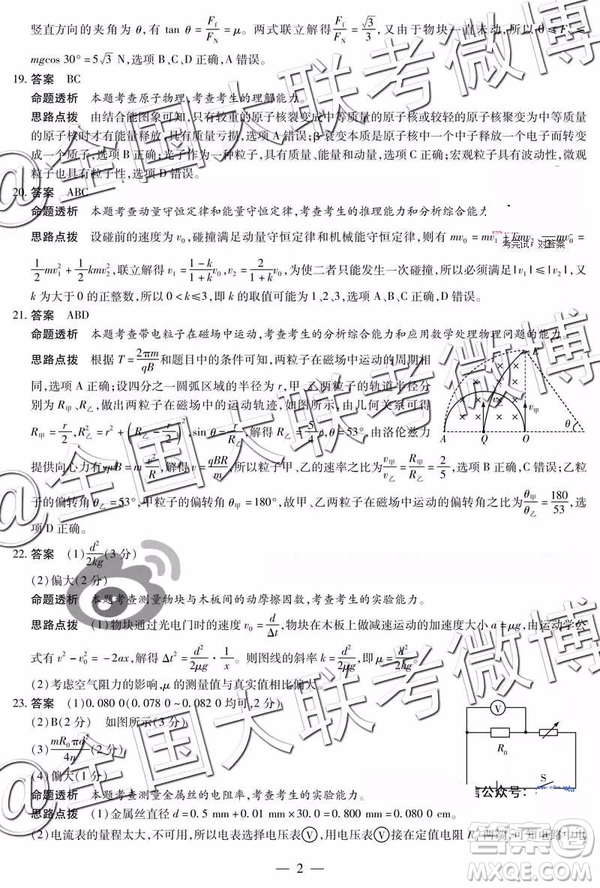 竖直方向的夹角为 θ,有 tan θ = F_f/F_N = μ。两式联立解得 F_f/F_N = √3/3,又由于物块一直未动,所以 0 ≤ F_f ≤
mgcos 30° = 5√3 N,选项 B、C、D 正确,A 错误。
19. 答案 BC
命题透析 本题考查原子物理,考查考生的理解能力。
思路点拨 由结合能图象可知,只有较重的原子核裂变成中等质量的原子核或较轻的原子核聚变为中等质量
的原子核时才有能量释放,具有质量亏损,选项A错误;β衰变本质是原子核中一个中子释放一个电子而转变
成一个质子,选项B正确;光子作为一种粒子,具有质量、能量和动量,选项C正确;宏观粒子具有波动性,微观
粒子也具有粒子性,选项D错误。
20. 答案 ABC
命题透析 本题考查动量守恒定律和能量守恒定律,考查考生的推理能力和分析综合能力。
思路点拨 设碰前的速度为 v₀,碰撞满足动量守恒定律和机械能守恒定律,则有 mv₀ = mv₁ + kmv₂,
1/2 mv₁² + 1/2 kmv₂²,联立解得 v₁ = (1-k)/(1+k) v₀,v₂ = 2/(1+k) v₀,为使二者只发生一次正碰,须满足 |v₁| ≤ |v₂|,又
k 为大于 0 的正整数,所以 0 < k ≤ 3,即 k 的可能值为 1、2、3,选项 A、B、C 正确,D 错误。
21. 答案 ABD
命题透析 本题考查带电粒子在磁场中运动,考查考生的分析综合能力和应用数学处理物理问题的能力。
思路点拨 根据 T = 2πm/qB 和题目的条件可知,两粒子在磁场中运动的周期相
同,选项A正确;设四分之一圆弧区域的半径为 r,甲、乙两粒子的轨道半径分
别为 R甲、R乙,做出两粒子在磁场中的运动轨迹,如图所示,由几何关系可得
R甲 = r/2,
θ = 53°,由洛伦兹力
提供向心力有 qvB = mv²/R,解得 v = qBR/m,所以粒子甲、乙的速率之比为 v甲/v乙 = R甲/R乙 = 2/5,选项B正确;乙粒
子的偏转角 θ乙 = 53°,甲粒子的偏转角 θ甲 = 180°,故甲、乙两粒子在磁场中运动的偏转角之比为 θ甲/θ乙 = 180/53,选
项D正确。
22. 答案 (1) d²/2kg (3分)
(2)偏大(2分)
命题透析 本题考查测量物块与木板间的动摩擦因数,考查考生的实验能力。
思路点拨 (1)物块通过光电门时的速度 v₀ = d/Δt,物块在木板上做匀减速运动的加速度大小 a = μg,由运动学公
式有 v² - v₀² = -2ax,解得 Δt² = d²/2μg · 1/x。则图线的斜率 k = d²/2μg,
(2)考虑空气阻力的影响,μ 的测量值与真实值相比偏大。
23. 答案 (1)0.080 0(0.078 0 ~ 0.082 0 均可)(2分)
(2)B(2分) 如图所示(3分)
(3)
(4)偏大(2分)
命题透析 本题考查测量金属丝的电阻率,考查考生的实验能力。
思路点拨 (1)金属丝直径 d = 0.5 mm + 0.01 mm × 30.0 = 0.800 mm。
(2)电流表的量程太大,不可用,所以用电压表选择电压表Ⓥ,用电压表Ⓥ接在定值电阻 R₀ 两端,可知电路中电
A Q O
v甲
V
R₀
S
考完试,对答案
公众号:
@全国大联考微博
答案圈
— 2 —